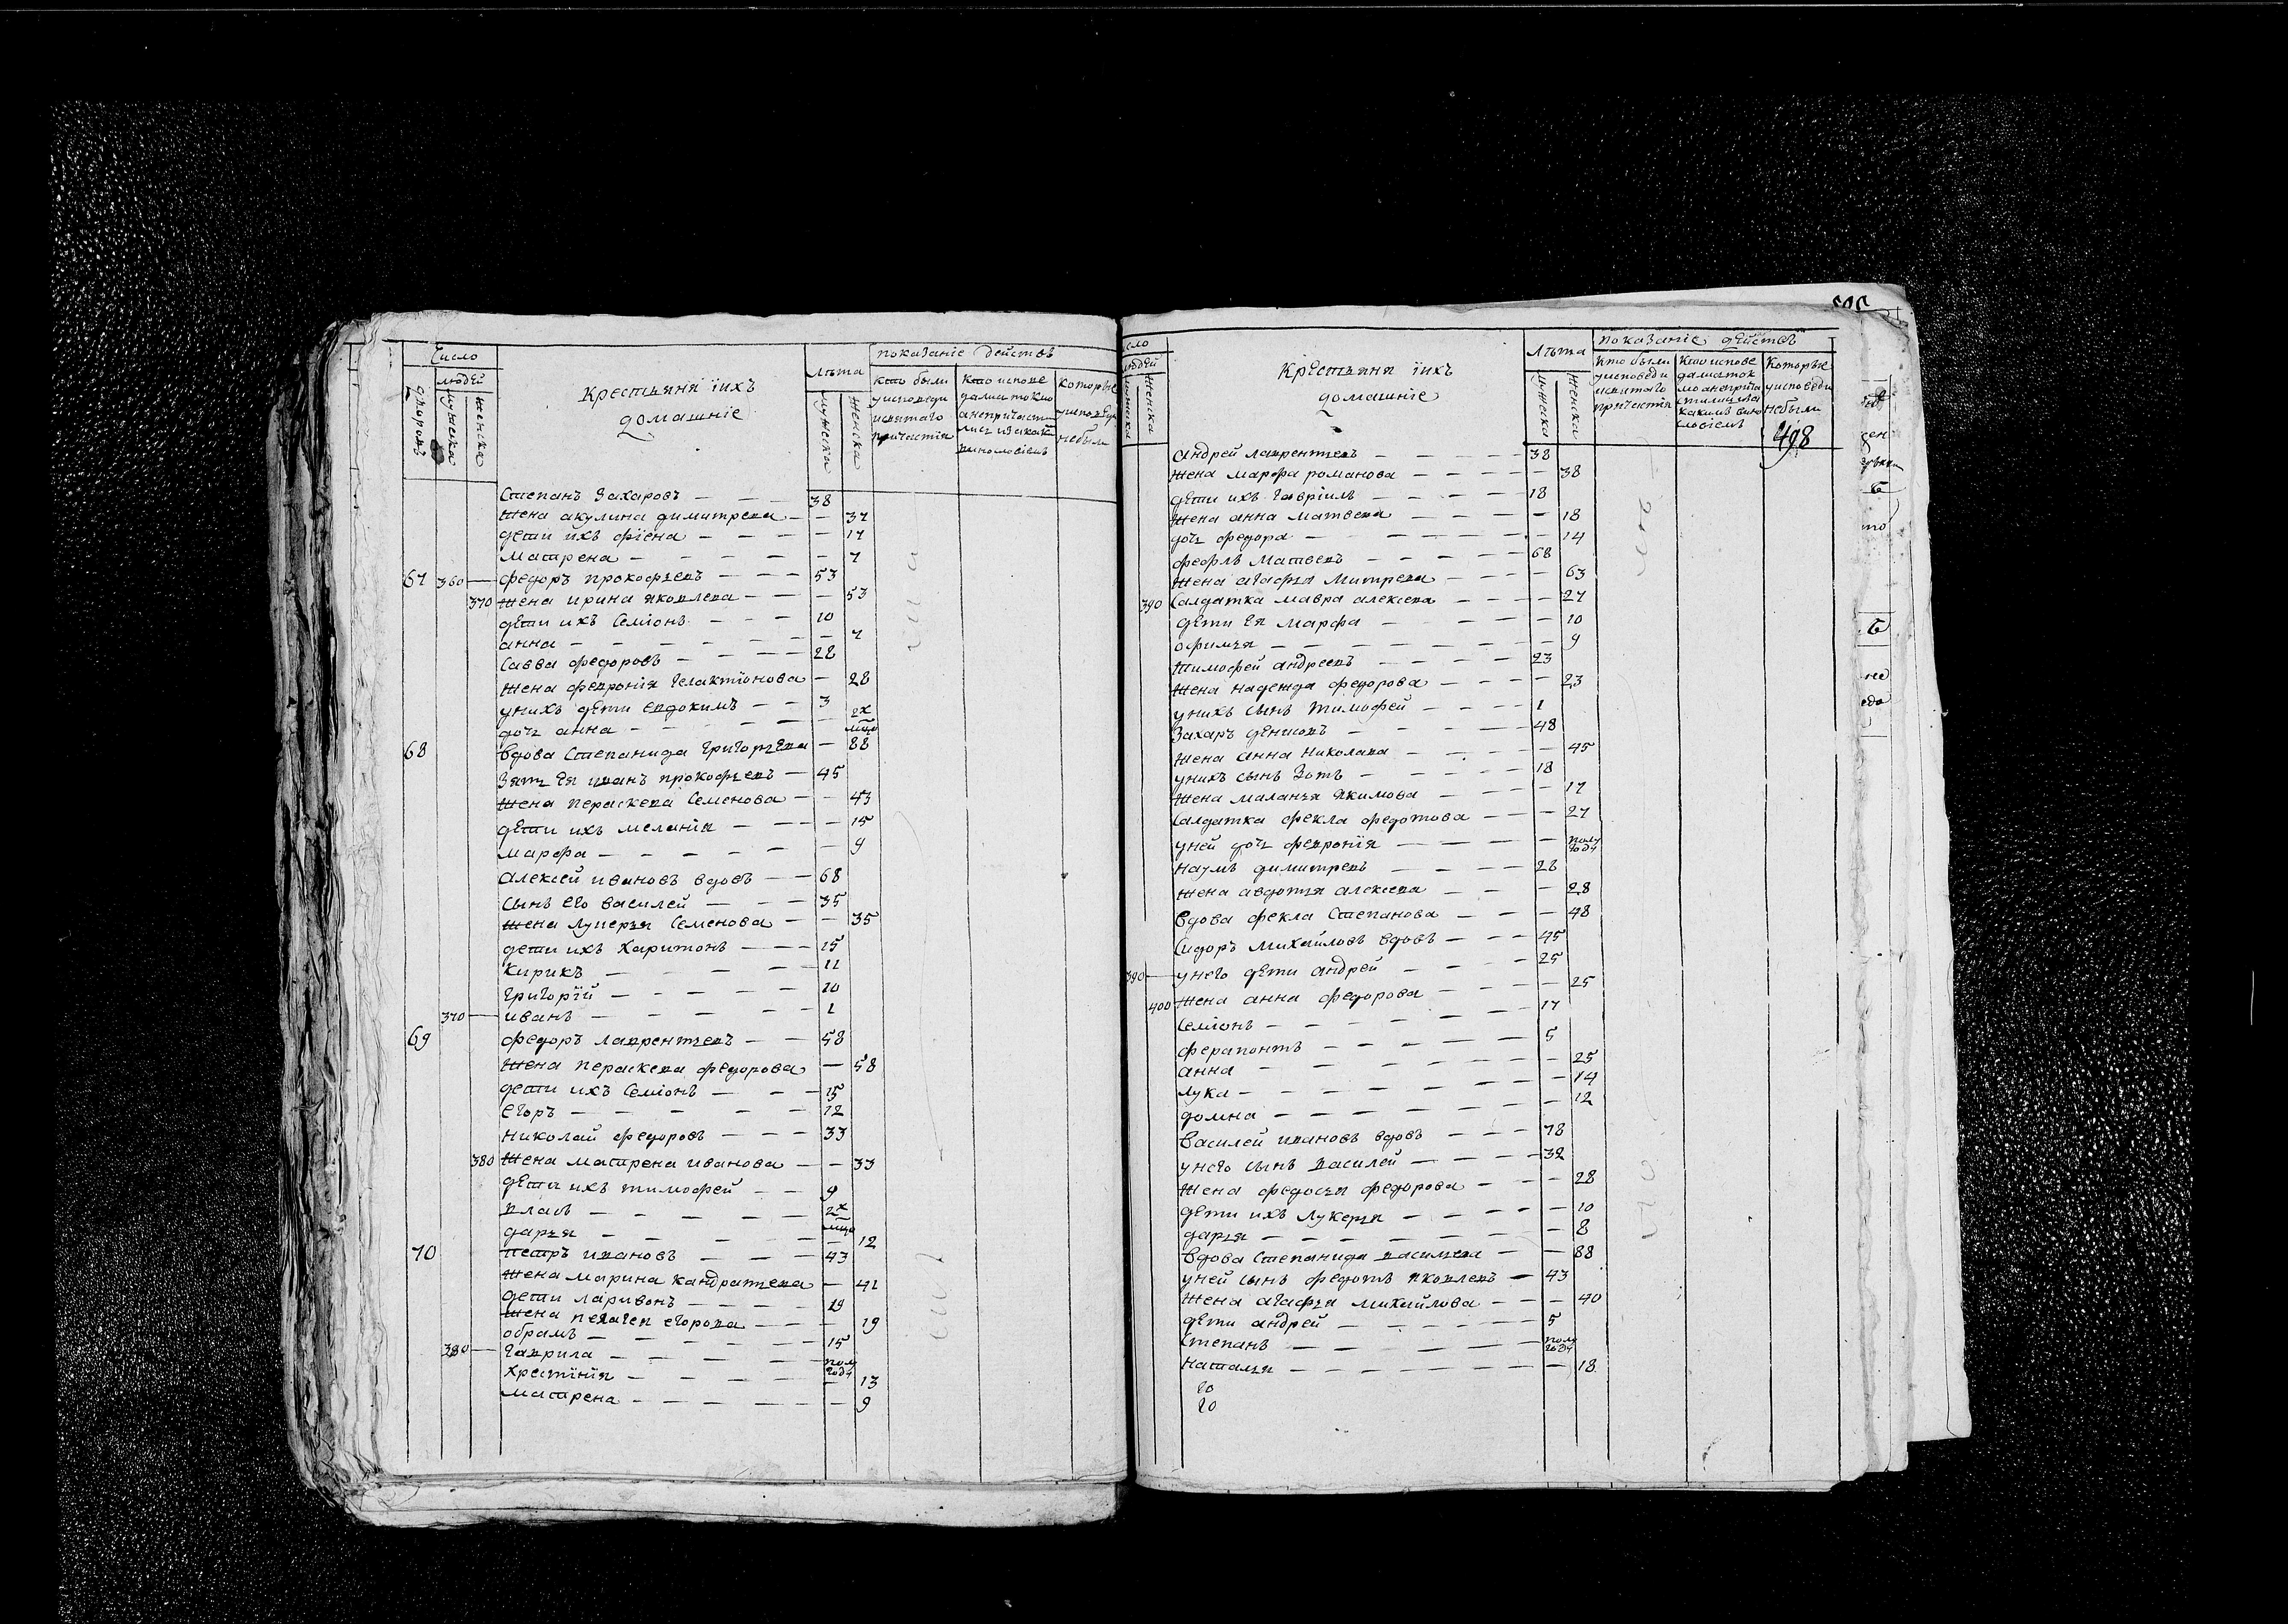 Число
людей
дворовъ
мужеска
женска
крестьяня їихъ
домашніе
лѣта
мужеска
женска
показаніе действъ
кто были
уисповеди
исвятаго
причастія
кто испове
дались токмо
анепричасти
лись изакак
винословіемъ
которые
уисповеди
небыли
Степанъ Захаровъ — — — 38
жена акулина димитрева — — 37
дети ихъ фїена — — — — 17
матрена — — — — — 7
67 360 — федоръ прокофьевъ — — — 53
370 жена ирина яковлева — — — 53
дети ихъ Семіонъ — — — 10
анна — — — — — — — 7
Савва федоровъ — — — — 28
жена февронія Гелактїонова — 28
унихъ дети евдокимъ — — 3
дочь анна — — — — — 2х мцо
68 вдова Степанида Григорьева — 88
Зять Ея иванъ прокофьевъ — 45
жена пераскева Семенова — — 43
дети ихъ меланія — — — — 15
марфа — — — — — — 9
алексей ивановъ вдовъ — — 68
Сынъ его василей — — — 35
жена лукерья Семенова — — 35
дети ихъ харитонъ — — — 15
кирикъ — — — — — 11
григорїй — — — — — 10
370 — иванъ — — — — — 1
69 федоръ лаврентьевъ — — 58
жена пераскева федорова — 58
дети ихъ Семіонъ — — — 15
егоръ — — — — — 12
николай федоровъ — — — 33
380 жена матрена иванова — — 33
дети ихъ тимофей — — 9
власъ — — — — — 2х мцо
дарья — — — — — — 12
70 петръ ивановъ — — — 43
жена марина кандратьева — 41
дети ларивонъ — — — — 19
жена пелагея егорова — — — 19
обрамъ — — — — — 15
380 — гаврила — — — — — полу году
хрестїнія — — — — — 13
матрена — — — — — — 9
сло
людей
мужеска
женска
крестьяня їихъ
домашніе
лѣта
мужеска
женска
показаніе действъ
кто были
уисповеди
исвятаго
причастія
кто испове
дались ток
мо анеприча
стились за
какимъ вино
словіемъ
Которые
уисповеди
небыли
498
андрей лаврентьевъ — — — — 38
жена марфа романова — — — — 38
дети ихъ гавріилъ — — — — 18
жена анна матвева — — — — 18
дочь федора — — — — — — 14
феофлъ матвевъ — — — — 68
жена агафья митрева — — — — 63
390 Салдатка мавра алексева — — — — 27
дети Ея марфа — — — — 10
офимья — — — — — — 9
тимофей андреевъ — — — — 23
жена надежда федорова — — — — 23
унихъ сынъ тимофей — — — — 1
Захаръ денисовъ — — — — 48
жена анна николаева — — — — 45
унихъ сынъ Зотъ — — — — 18
жена маланья якимова — — — 17
Салдатка фекла федотова — — — 27
уней дочь февронїя — — — — полу году
наумъ димитревъ — — — 28
жена авдотья алексева — — — 28
вдова фекла Степанова — — — 48
Сидоръ михайловъ вдовъ — — — 45
390 — унего дети андрей — — — — 25
400 жена анна федорова — — — — 25
Семіонъ — — — — — — 17
ферапонтъ — — — — — 5
анна — — — — — — 25
лука — — — — — — — 14
домна — — — — — — — 12
василей ивановъ вдовъ — — — 78
унего сынъ василей — — — — 32
жена федосья федорова — — — 28
дети ихъ лукерья — — — — — 10
дарья — — — — — — — 8
вдова Степанида васильева — — 88
уней сынъ федотъ яковлевъ — 43
жена агафья михайлова — — — 40
дети андрей — — — — — 5
Степанъ — — — — — — полу году
наталья — — — — — — 18
20
20